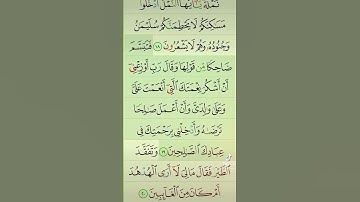 نَمْلَةٌ يَٰٓأَيُّهَا ٱلنَّمْلُ ٱدْخُلُوا۟
مَسَٰكِنَكُمْ لَا يَحْطِمَنَّكُمْ سُلَيْمَٰنُ
وَجُنُودُهُۥ وَهُمْ لَا يَشْعُرُونَ ١٨ فَتَبَسَّمَ
ضَاحِكًا مِّن قَوْلِهَا وَقَالَ رَبِّ أَوْزِعْنِىٓ
أَنْ أَشْكُرَ نِعْمَتَكَ ٱلَّتِىٓ أَنْعَمْتَ عَلَىَّ
وَعَلَىٰ وَٰلِدَىَّ وَأَنْ أَعْمَلَ صَٰلِحًا
تَرْضَىٰهُ وَأَدْخِلْنِى بِرَحْمَتِكَ فِى
عِبَادِكَ ٱلصَّٰلِحِينَ ١٩ وَتَفَقَّدَ
ٱلطَّيْرَ فَقَالَ مَالِىَ لَآ أَرَى ٱلْهُدْهُدَ
أَمْ كَانَ مِنَ ٱلْغَآئِبِينَ ٢٠